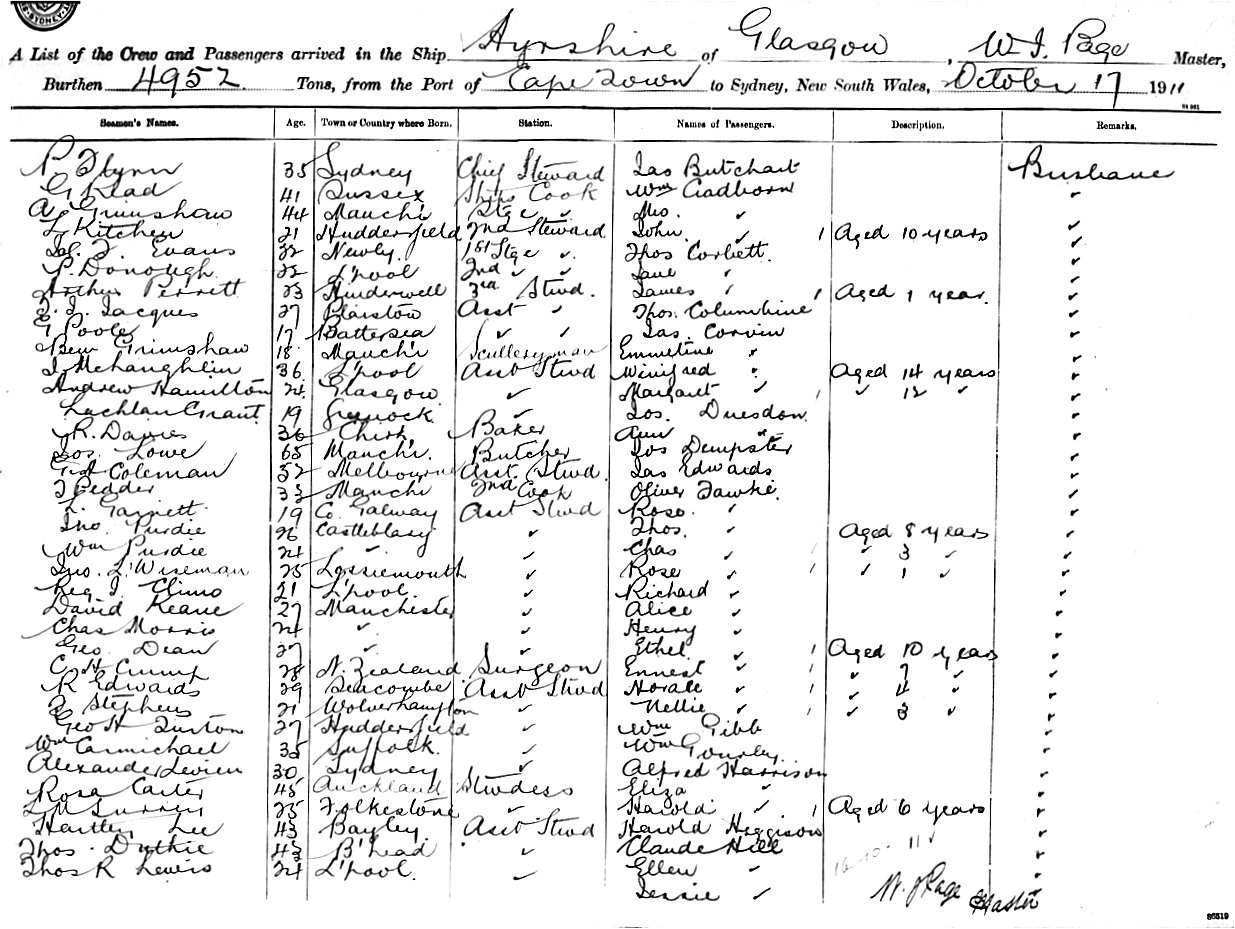 SYDNEY
A List of the Crew and Passengers arrived in the Ship Ayrshire of Glasgow, W. J. Page Master,
Burthen 4952 Tons, from the Port of Cape Town to Sydney, New South Wales, October 17 1911
Seamen's Names. Age. Town or Country where Born. Station. Names of Passengers. Description. Remarks.
P. Flynn 35 Sydney Chief Steward Jas Butchart Brisbane
G. Read 41 Sussex Ships Cook Wm Cradhorn "
A. Grimshaw 44 Manchr Stge " Mrs. " "
L. Kitchen 21 Huddersfield 2nd Steward John " 1 Aged 10 years "
Jas. F. Evans 32 Newly. 1st Stge " Thos Corbett. "
P. Donough 22 L'pool 2nd " " Jane " "
Arthur Perrett 23 Hinderwell 3rd Stwd. James " 1 Aged 1 year. "
F. J. Jacques 27 Plaistow Asst " Thos. Columbine "
G Poole 17 Battersea " " Jas. Corvin "
Benj Grimshaw 18 Manchr Sculleryman Emmeline " "
J. McLaughlin 36 L'pool Asst Stwd Winifred " Aged 14 years "
Andrew Hamilton 24 Glasgow " Margaret " 1 " 12 " "
Lachlan Grant 19 Greenock " Jos. Duesdon "
R. Davies 36 Chirk Baker Ann " "
Jos. Lowe 65 Manchr. Butcher Jos Dempster "
G. A Coleman 52 Melbourne Asst. Stwd. Jas Edwards "
J Pedder 33 Manchr 2nd Cook Oliver Fawke. "
L. Garnett 19 Co. Galway Asst Stwd Rose. " "
Jno. Purdie 26 Castleblary " Thos. " Aged 8 years "
Wm Purdie 24 " " Chas " 1 " 3 " "
Jno. L. Wiseman 25 Lossiemouth " Rose " 1 " 1 " "
Reg. J. Climo 21 L'pool. " Richard " "
David Keane 27 Manchester " Alice " "
Chas Morris 24 " " Henry " "
Geo. Dean 27 " " Ethel " 1 Aged 10 years "
C. H. Crump 28 N. Zealand. Surgeon Ernest " 1 " 7 " "
R Edwards 29 Seacombe Asst Stwd Horace " 1 " 4 " "
F. Stephens 21 Wolverhampton " Nellie " 1 " 3 " "
Geo H Turton 27 Huddersfield " Wm Gibb "
Wm Carmichael 35 Suffolk. " Wm Gourley. "
Alexander Levien 30 Sydney " Alfred Harrison "
Rosa Carter 45 Auckland Stwdess Eliza " "
L M Surrey 25 Folkestone " Harold " 1 Aged 6 years "
Hartley Lee 43 Bagley Asst Stwd Harold Heggison "
Thos. Duthie 43 B'head " Claude Hill "
Thos R Lewis 24 L'pool. " Ellen " "
Jessie " "
16 10 11
W. J Page Master
86519